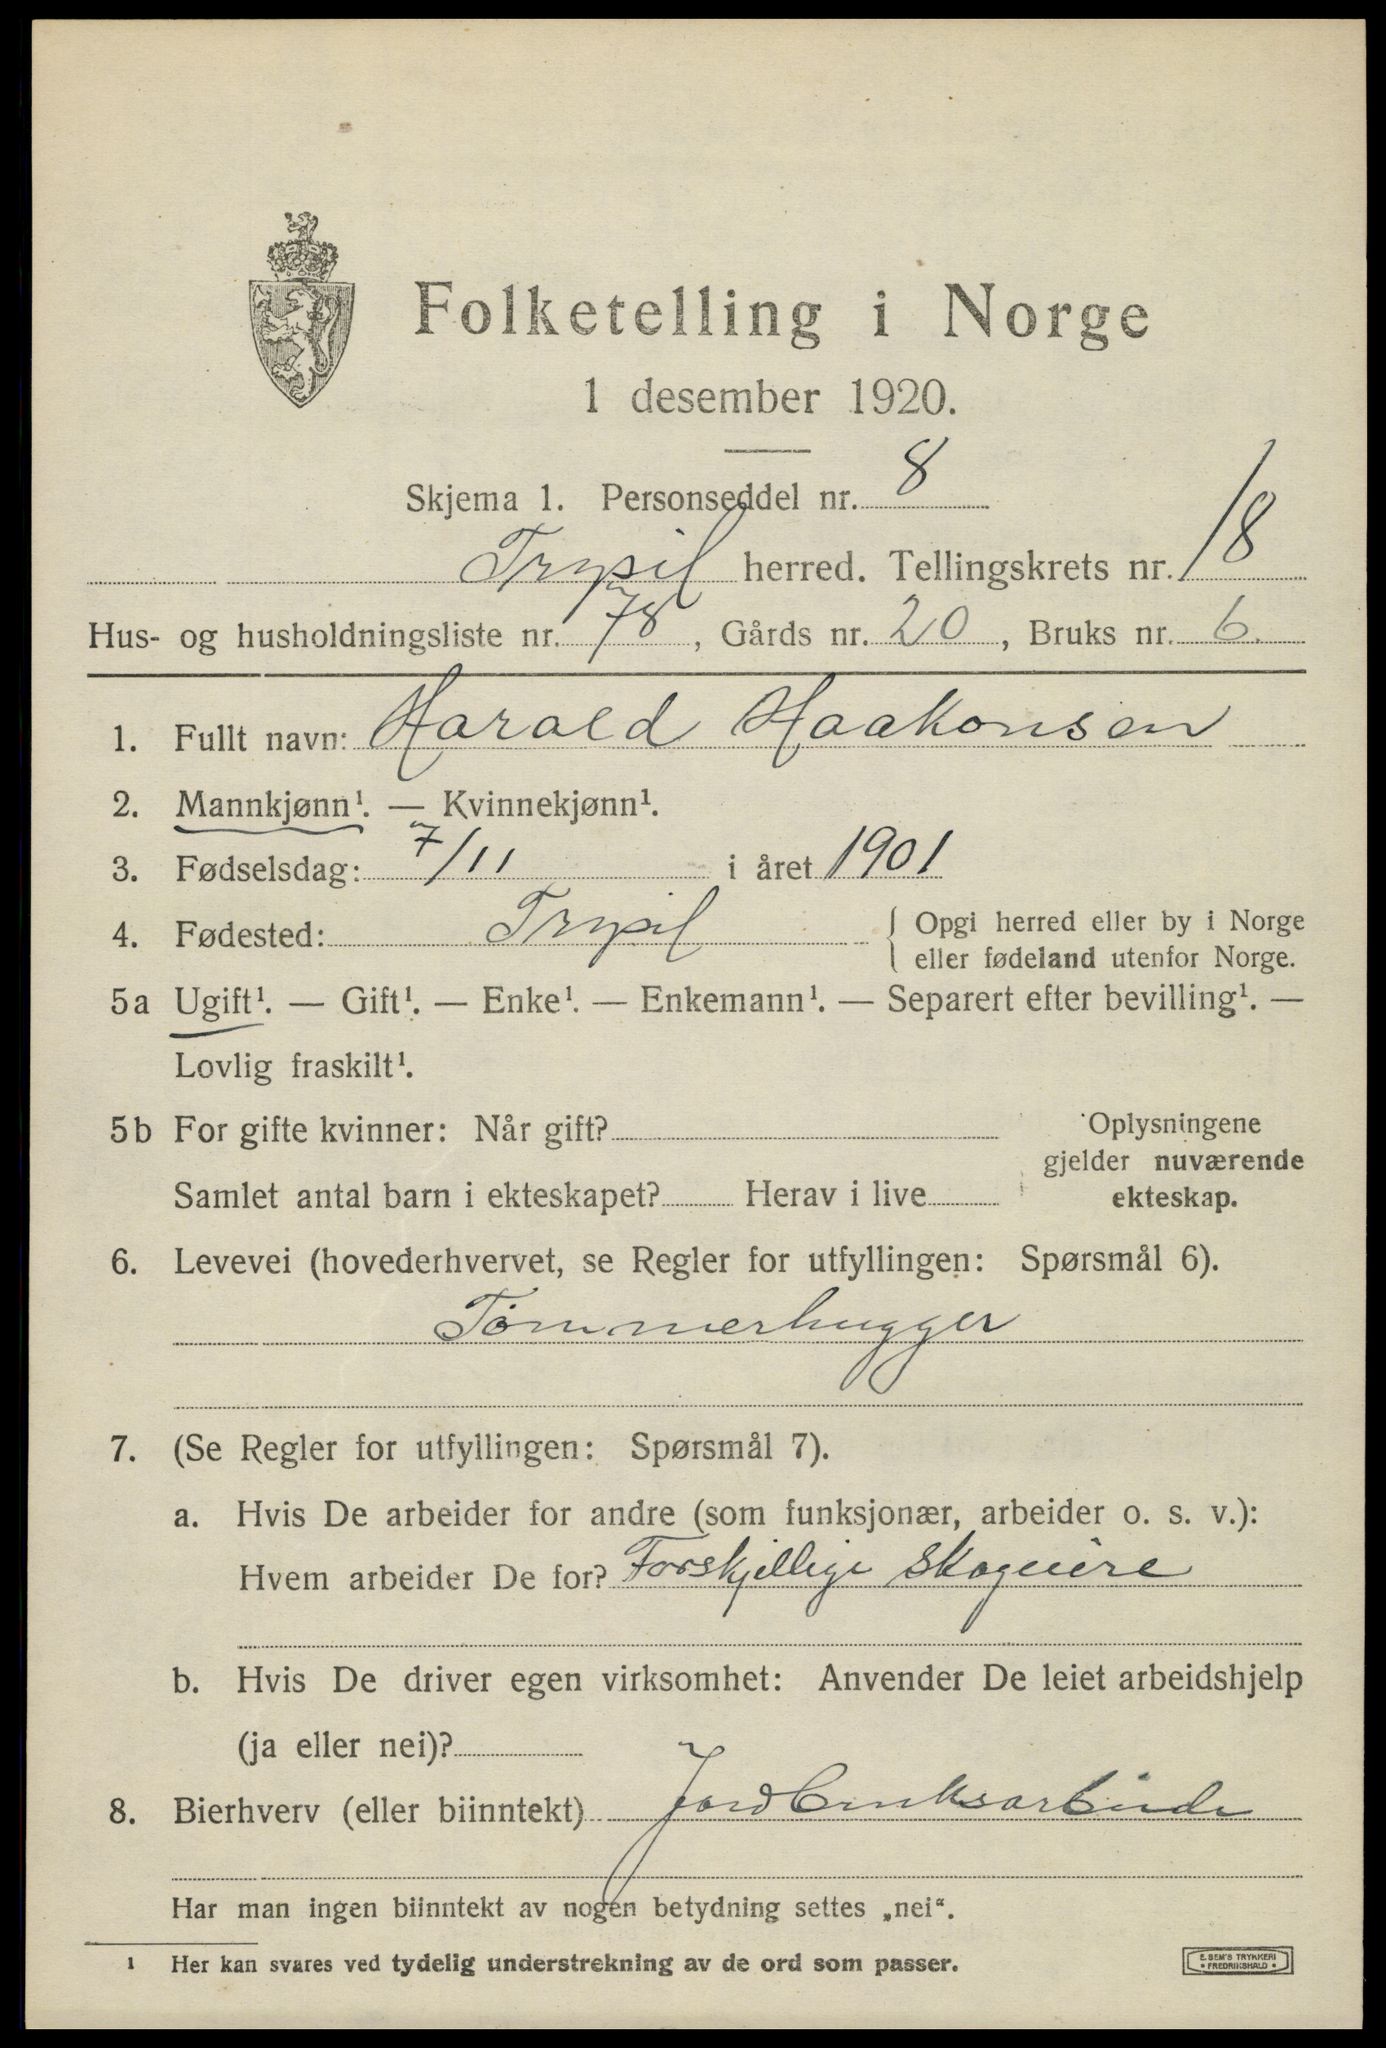 Folketelling i Norge
1 desember 1920.
Skjema 1. Personseddel nr. 8
Trysil herred. Tellingskrets nr. 18
Hus- og husholdningsliste nr. 78, Gårds nr. 20, Bruks nr. 6.
1. Fullt navn: Harald Haakonsen
2. Mannkjønn¹. — Kvinnekjønn¹.
3. Fødselsdag: 7/11 i året 1901
4. Fødested: Trysil { Opgi herred eller by i Norge
eller fødeland utenfor Norge.
5a Ugift¹. — Gift¹. — Enke¹. — Enkemann¹. — Separert efter bevilling¹. —
Lovlig fraskilt¹.
5b For gifte kvinner: Når gift?
Samlet antal barn i ekteskapet? Herav i live
Oplysningene
gjelder nuværende
ekteskap.
6. Levevei (hovederhvervet, se Regler for utfyllingen: Spørsmål 6).
Tømmerhugger
7. (Se Regler for utfyllingen: Spørsmål 7).
a. Hvis De arbeider for andre (som funksjonær, arbeider o. s. v.):
Hvem arbeider De for? Forskjellige skogeiere
b. Hvis De driver egen virksomhet: Anvender De leiet arbeidshjelp
(ja eller nei)?
8. Bierhverv (eller biinntekt) Jordbruksarbeide
Har man ingen biinntekt av nogen betydning settes „nei“.
¹ Her kan svares ved tydelig understrekning av de ord som passer.
E. SEM'S TRYKKERI
• FREDRIKSHALD •